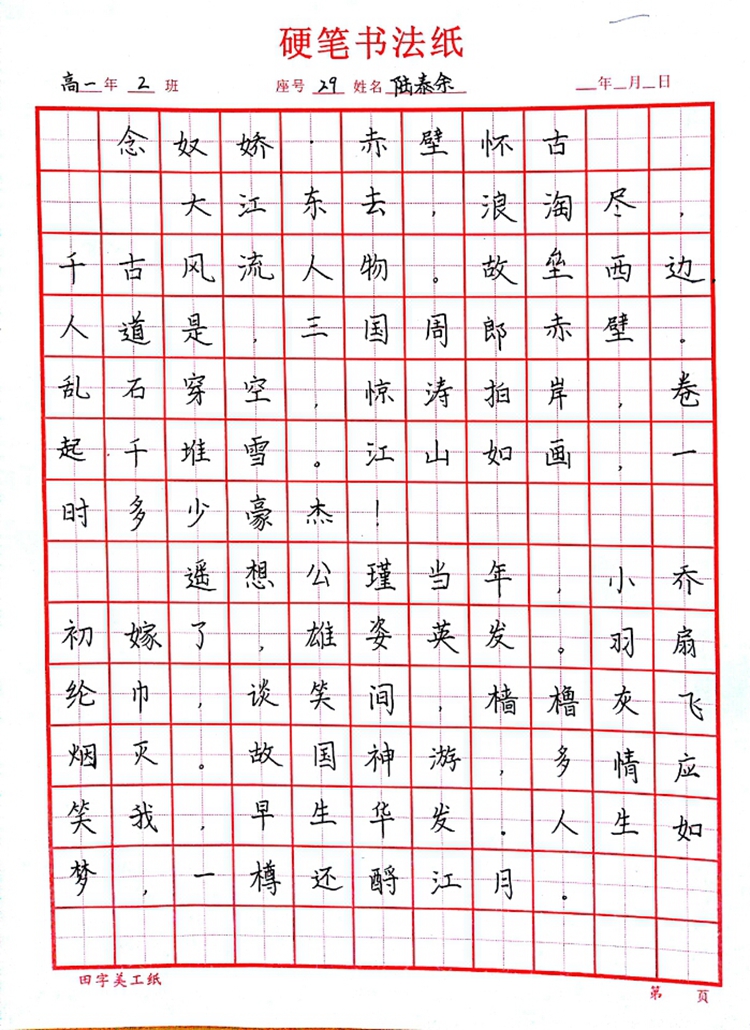 硬笔书法纸
高一年 2 班 座号 29 姓名 陆泰余 年 月 日
念奴娇·赤壁怀古
大江东去,浪淘尽,
千古风流人物。故垒西边,
人道是,三国周郎赤壁。
乱石穿空,惊涛拍岸,卷
起千堆雪。江山如画,一
时多少豪杰!
遥想公瑾当年,小乔
初嫁了,雄姿英发。羽扇
纶巾,谈笑间,樯橹灰飞
烟灭。故国神游,多情应
笑我,早生华发。人生如
梦,一樽还酹江月。
田字美工纸 第 頁